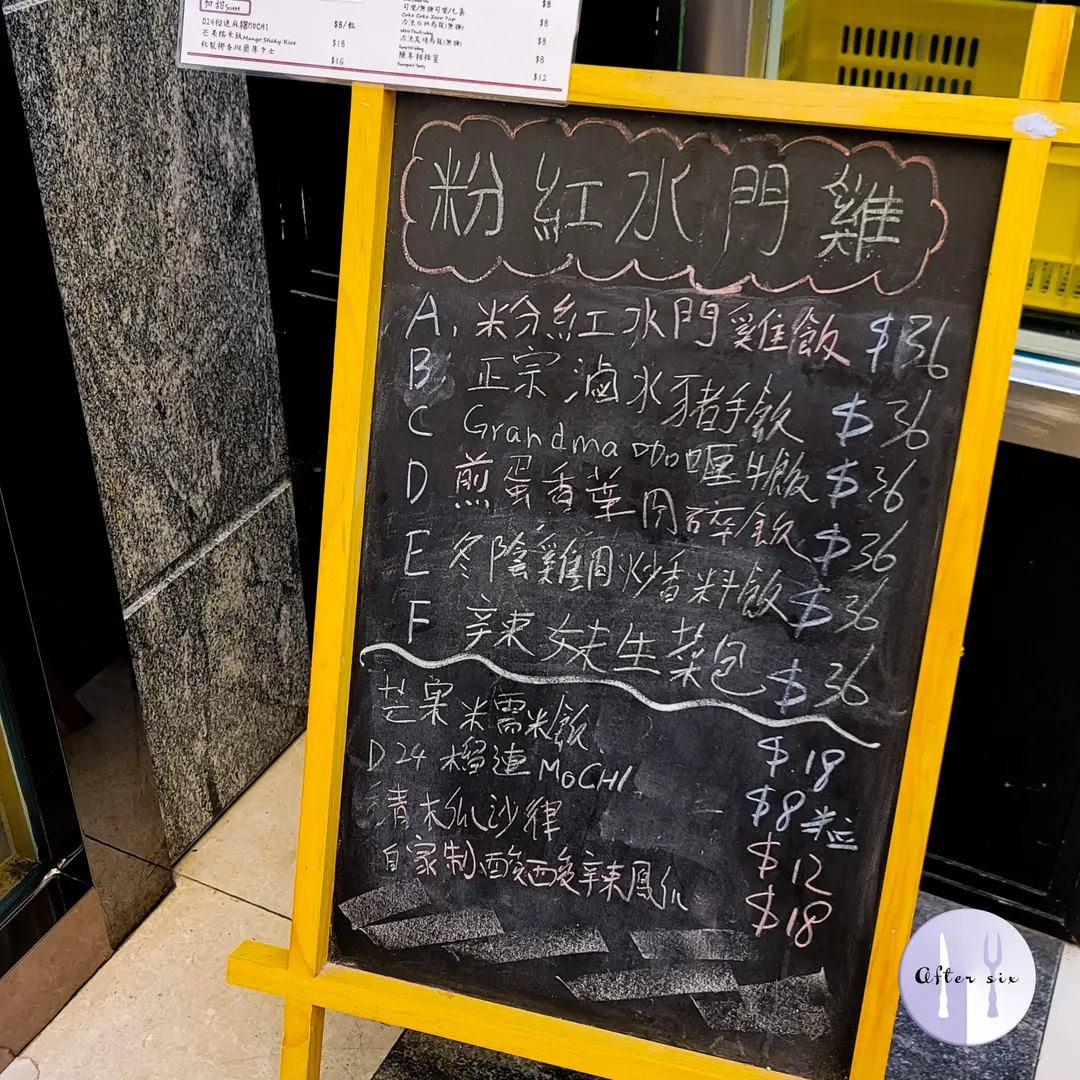 加甜 Sweet
D24榴連麻糬MOCHI $8/粒
芒果糯米飯Mango Sticky Rice $18
$16
$8
可樂/無糖可樂/七喜
$8
$8
$8
$12
粉紅水門雞
A. 粉紅水門雞飯 $36
B. 正宗滷水豬手飯 $36
C Grandma咖喱牛飯 $36
D 煎蛋香葉肉碎飯 $36
E 冬陰雞肉炒香料飯 $36
F 辣妹生菜包 $36
芒果糯米飯 $18
D24榴連MOCHI $8粒
青木瓜沙律 $12
自家制酸辣鳳爪 $18
After six